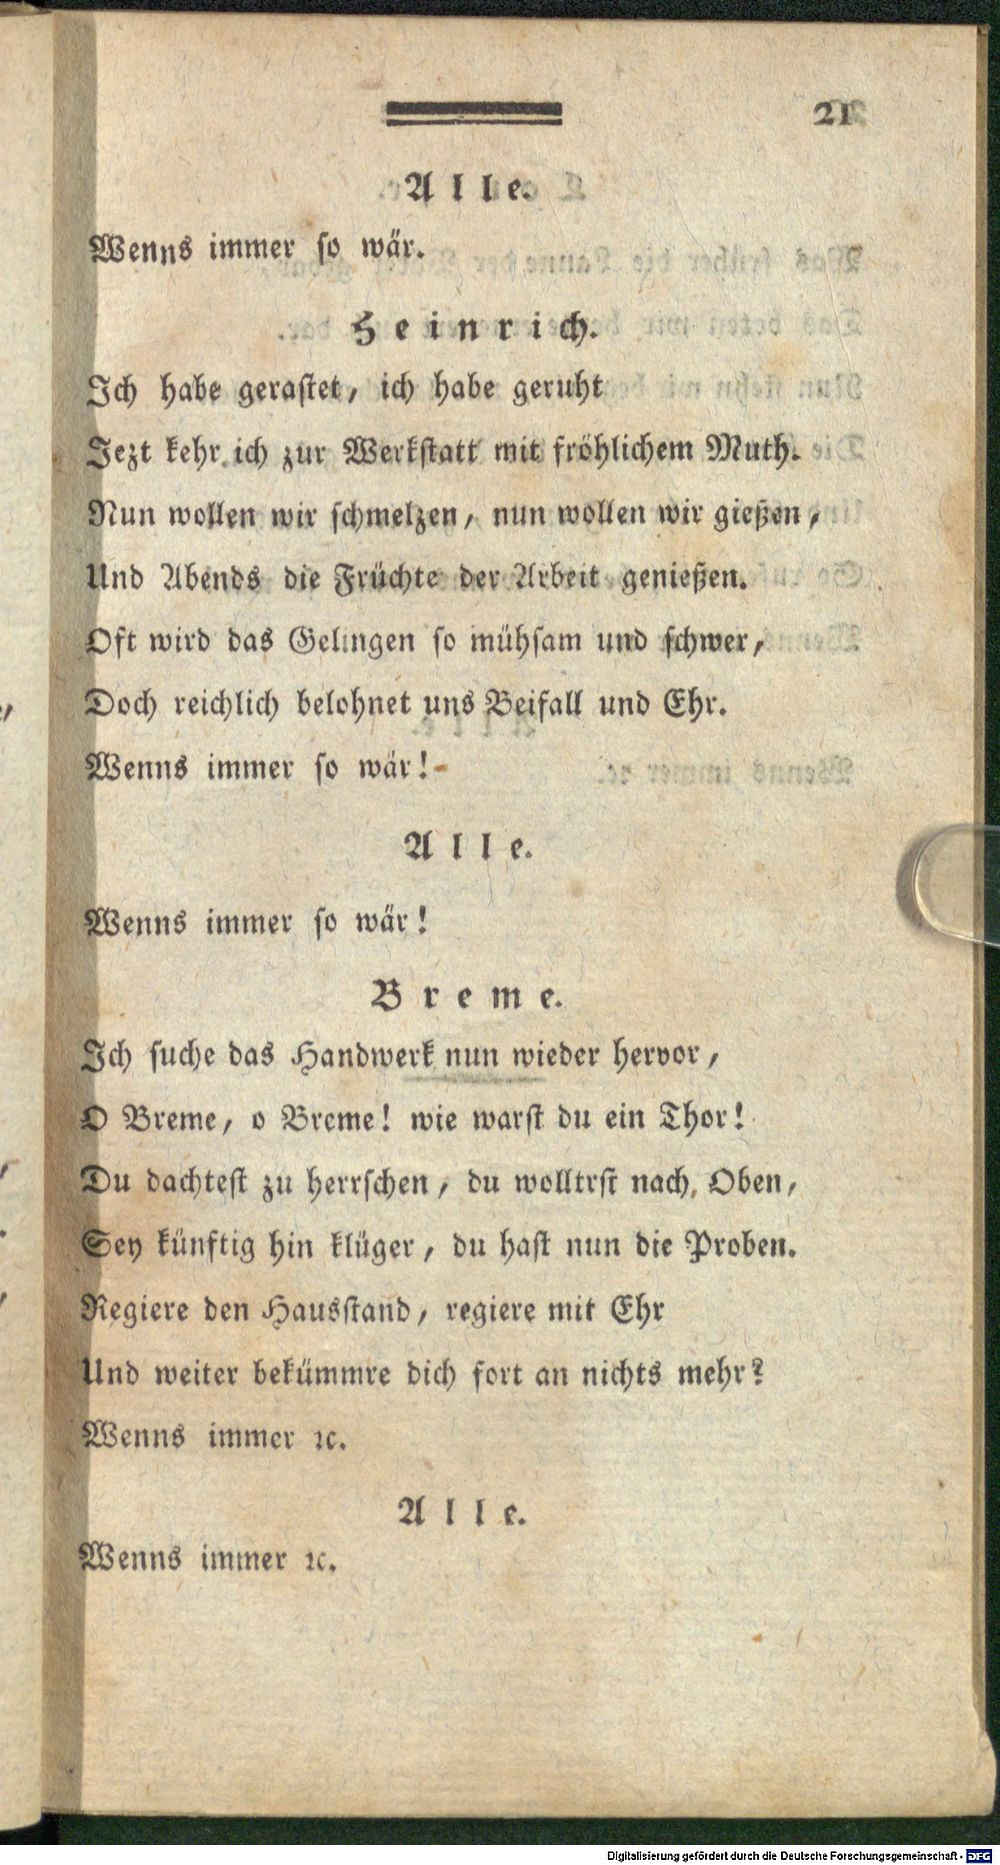 21
Alle.
Wenns immer so wär.
Heinrich.
Ich habe gerastet, ich habe geruht
Jezt kehr ich zur Werkstatt mit fröhlichem Muth.
Nun wollen wir schmelzen, nun wollen wir gießen,
Und Abends die Früchte der Arbeit genießen.
Oft wird das Gelingen so mühsam und schwer,
Doch reichlich belohnet uns Beifall und Ehr.
Wenns immer so wär!-
Alle.
Wenns immer so wär!
Breme.
Ich suche das Handwerk nun wieder hervor,
O Breme, o Breme! wie warst du ein Thor!
Du dachtest zu herrschen, du wolltrst nach Oben,
Sey künftig hin klüger, du hast nun die Proben.
Regiere den Hausstand, regiere mit Ehr
Und weiter bekümmre dich fort an nichts mehr?
Wenns immer ꝛc.
Alle.
Wenns immer ꝛc.
Digitalisierung gefördert durch die Deutsche Forschungsgemeinschaft - DFG